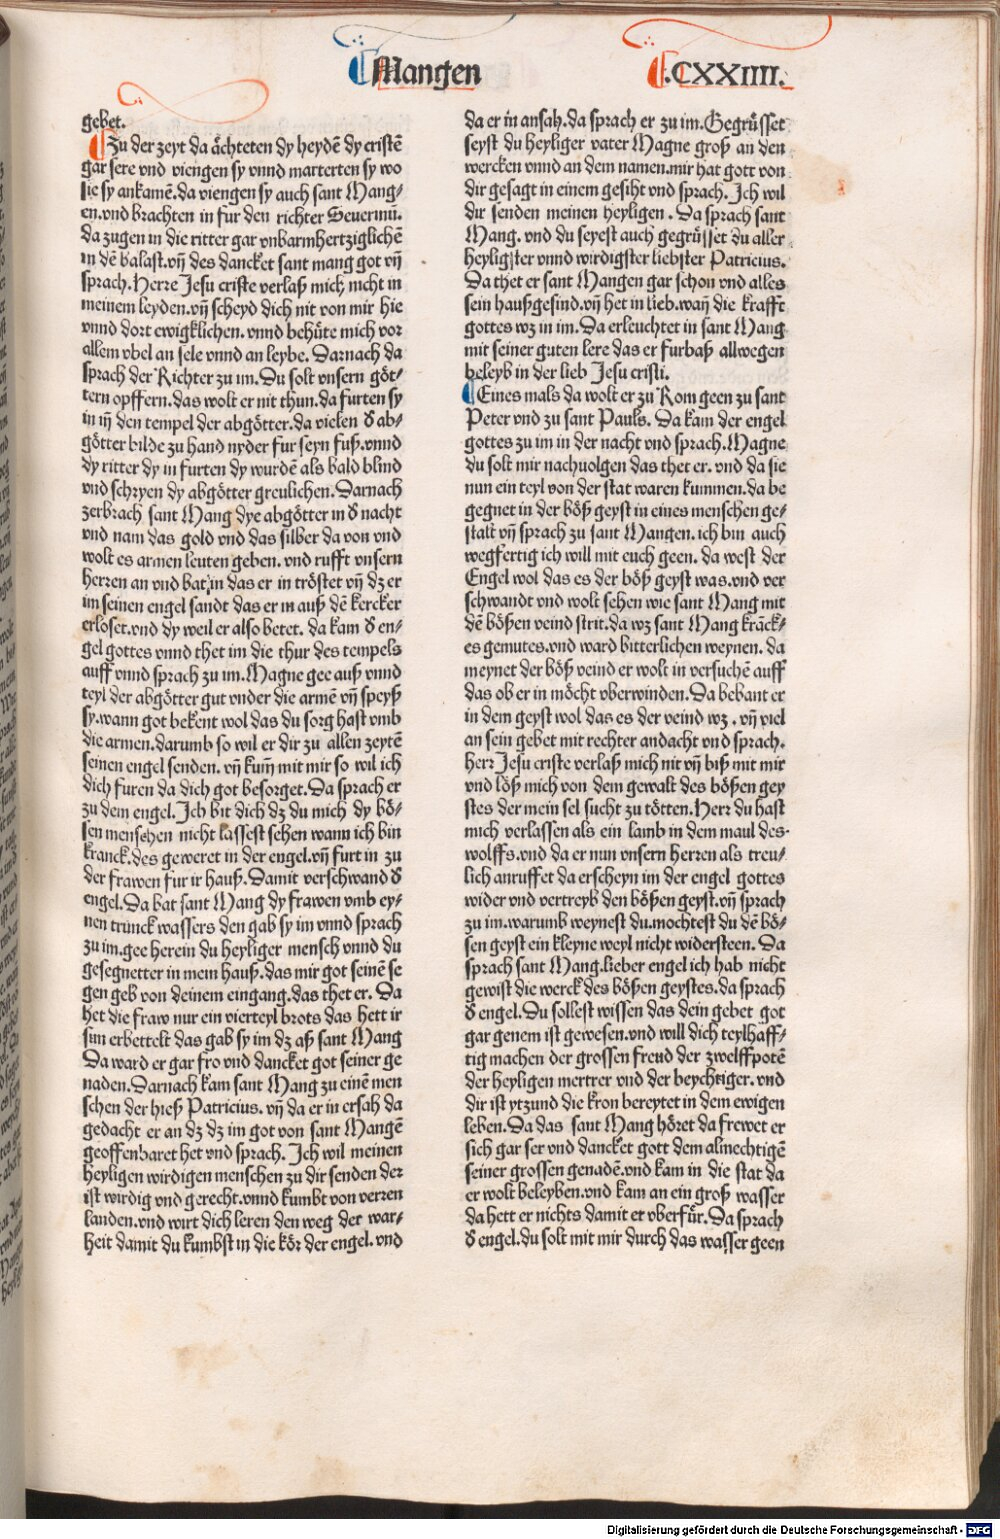 Mangen
.CXXIIII.
gebet.
Zu der zeyt da ächteten dy heydē dy cristē
gar sere vnd viengen sy vnnd marterten sy wo
sie sy ankamē.da viengen sy auch sant Mang-
en.vnd brachten in fur den richter Seuerinū.
da zugen in die ritter gar vnbarmhertziglichē
in dē balast.vñ des dancket sant mang got vñ
sprach.Herre Jesu criste verlaß mich nicht in
meinem leyden.vñ scheyd dich nit von mir hie
vnnd dort ewigklichen.vnnd behüte mich vor
allem vbel an sele vnnd an leybe. Darnach da
sprach der Richter zu im.Du solt vnsern göt-
tern opffern.das wolt er nit thun.da furten sy
in iñ den tempel der abgötter.da vielen d̕ ab-
götter bilde zu hand nyder fur seyn fuß.vnnd
dy ritter dy in furten dy wurdē als bald blind
vnd schryen dy abgötter greulichen.Darnach
zerbrach sant Mang dye abgötter in d̕ nacht
vnd nam das gold vnd das silber da von vnd
wolt es armen leuten geben.vnd rufft vnsern
herren an vnd bat in das er in tröstet vñ dz er
im seinen engel sandt das er in auß dē kercker
erloset.vnd dy weil er also betet. da kam d̕ en-
gel gottes vnnd thet im die thur des tempels
auff vnnd sprach zu im.Magne gee auß vnnd
teyl der abgötter gut vnder die armē vñ speyß
sy.wann got bekent wol das du sorg hast vmb
die armen.darumb so wil er dir zu allen zeytē
seinen engel senden. vñ kum̄ mit mir so wil ich
dich furen da dich got besorget.Da sprach er
zu dem engel.Ich bit dich dz du mich dy bö-
sen menschen nicht lassest sehen wann ich bin
kranck.des geweret in der engel.vñ furt in zu
der frawen fur ir hauß.Damit verschwand d̕
engel.Da bat sant Mang dy frawen vmb ey-
nen trunck wassers den gab sy im vnnd sprach
zu im.gee herein du heyliger mensch vnnd du
gesegnetter in mein hauß.das mir got seinē se
gen geb von deinem eingang.das thet er. Da
het die fraw nur ein vierteyl brots das hett ir
sun erbettelt das gab sy im dz aß sant Mang
Da ward er gar fro vnd dancket got seiner ge
naden.Darnach kam sant Mang zu einē men
schen der hieß Patricius. vñ da er in ersah da
gedacht er an dz dz im got von sant Mangē
geoffenbaret het vnd sprach. Ich wil meinen
heyligen wirdigen menschen zu dir senden der
ist wirdig vnd gerecht.vnnd kumbt von verren
landen.vnd wirt dich leren den weg der war-
heit damit du kumbst in die kör der engel.vnd
da er in ansah.da sprach er zu im.Gegrüsset
seyst du heyliger vater Magne groß an den
wercken vnnd an dem namen.mir hat gott von
dir gesagt in einem gesiht vnd sprach. Ich wil
dir senden meinen heyligen . Da sprach sant
Mang. vnd du seyest auch gegrüsset du aller
heyligster vnnd wirdigster liebster Patricius.
Da thet er sant Mangen gar schon vnd alles
sein haußgesind.vñ het in lieb.wañ die krafft
gottes wz in im. Da erleuchtet in sant Mang
mit seiner guten lere das er furbaß allwegen
beleyb in der lieb Jesu cristi.
Eines mals da wolt er zu Rom geen zu sant
Peter vnd zu sant Pauls. Da kam der engel
gottes zu im in der nacht vnd sprach.Magne
du solt mir nachuolgen das thet er. vnd da sie
nun ein teyl von der stat waren kummen.da be
gegnet in der böß geyst in eines menschen ge-
stalt vñ sprach zu sant Mangen.ich bin auch
wegfertig ich will mit euch geen. da west der
Engel wol das es der böß geyst was.vnd ver
schwandt vnd wolt sehen wie sant Mang mit
dē bößen veind strit.da wz sant Mang krāck-
es gemutes.vnd ward bitterlichen weynen. da
meynet der böß veind er wolt in versuchē auff
das ob er in möcht vberwinden.Da bekant er
in dem geyst wol das es der veind wz . vñ viel
an sein gebet mit rechter andacht vnd sprach.
herr Jesu criste verlaß mich nit vñ biß mit mir
vnd löß mich von dem gewalt des bößen gey
stes der mein sel sucht zu tötten.Herr du hast
mich verlassen als ein lamb in dem maul des
wolffs.vnd da er nun vnsern herren als treu-
lich anruffet da erscheyn im der engel gottes
wider vnd vertreyb den bößen geyst.vñ sprach
zu im.warumb weynest du.mochtest du dē bö-
sen geyst ein kleyne weyl nicht widersteen. Da
sprach sant Mang.lieber engel ich hab nicht
gewist die werck des bößen geystes.da sprach
d̕ engel.Du sollest wissen das dein gebet got
gar genem ist gewesen.vnd will dich teylhaff-
tig machen der grossen freud der zwelffpotē
der heyligen mertrer vnd der beychtiger. vnd
dir ist ytzund die kron bereytet in dem ewigen
leben. Da das sant Mang höret da frewet er
sich gar ser vnd dancket gott dem almechtigē
seiner grossen genadē.vnd kam in die stat da
er wolt beleyben.vnd kam an ein groß wasser
da hett er nichts damit er vberfůr. Da sprach
d̕ engel.du solt mit mir durch das wasser geen
Digitalisierung gefördert durch die Deutsche Forschungsgemeinschaft - DFG